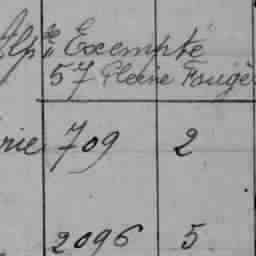 Exempté
57 Pleine Fougè
rie 709 2
2096 5